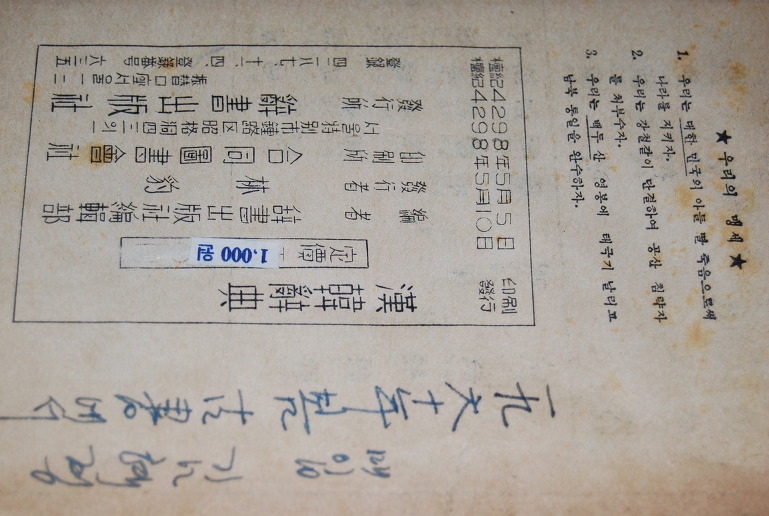 ★ 우리의 맹세 ★
1. 우리는 대한 민국의 아들 딸 죽음으로써
나라를 지키자.
2. 우리는 강철같이 단결하여 공산 침략자
를 쳐부수자.
3. 우리는 백두 산 영봉에 태극기 날리고
남북 통일을 완수하자.
檀紀4298年5月5日 印刷
檀紀4298年5月10日 發行
漢韓辭典
定價 1,000
編者 辭書出版社編輯部
發行者 林豹
印刷所 合同圖書會社
서울特別市鍾路区昭格洞四三의一
發行所 辭書出版社
振替口座서울一二
登錄 四二八七、十一、四、登錄番号 六三五
一九六十年 古書에서
매입